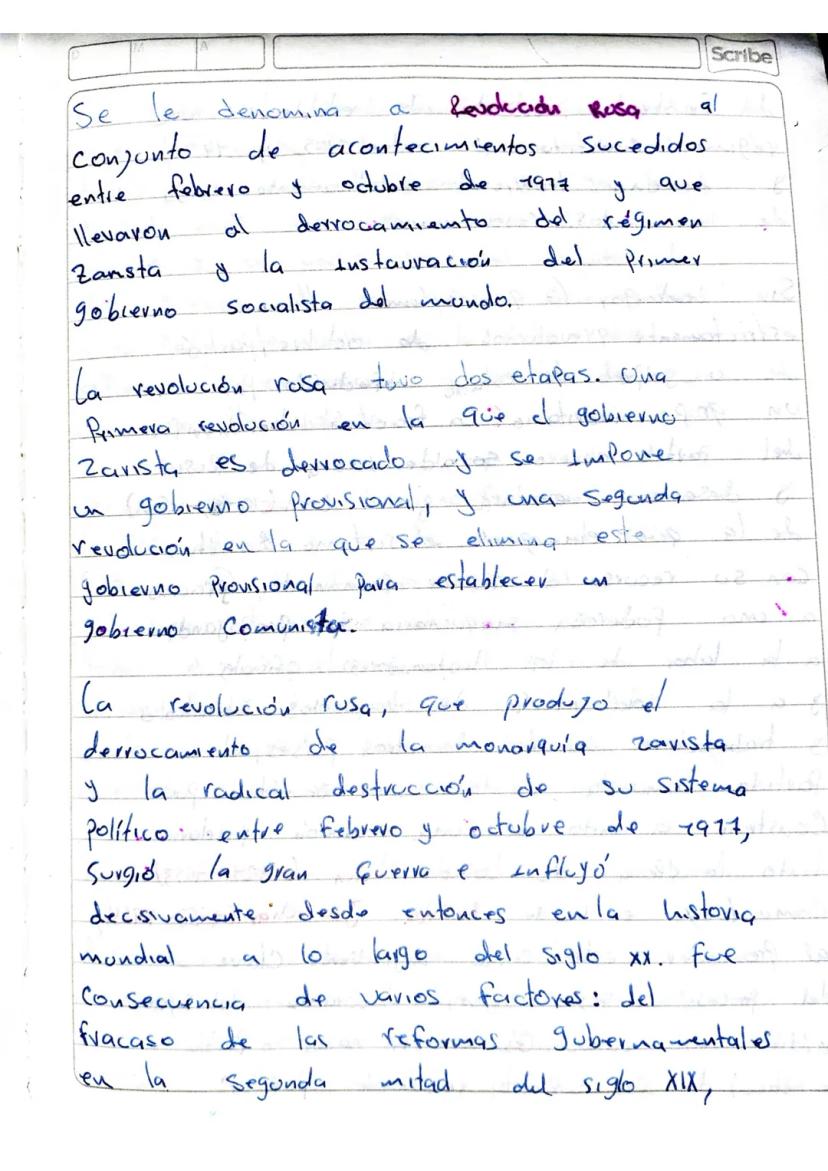 D M A
Scribe
Se le denomina a Revolución Rusa al
conjunto de acontecimientos sucedidos
entre febrero y octubre de 1917 y que
llevaron al derrocamiento del régimen
Zarista y la instauración del Primer
gobierno socialista del mundo.
La revolución rusa tuvo dos etapas. Una
Primera revolución en la que el gobierno
Zarista es derrocado y se impone
un gobierno Provisional, y una Segunda
revolución en la que se elimina este
gobierno Provisional Para establecer un
gobierno Comunista.
La revolución rusa, que produjo el
derrocamiento de la monarquía zarista
y la radical destrucción de su sistema
político entre febrero y octubre de 1917,
Surgió la gran Guerra e influyó
decisivamente desde entonces en la historia
mundial a lo largo del siglo xx. fue
Consecuencia de varios factores: del
fracaso de las reformas gubernamentales
en la segunda mitad del siglo XIX,